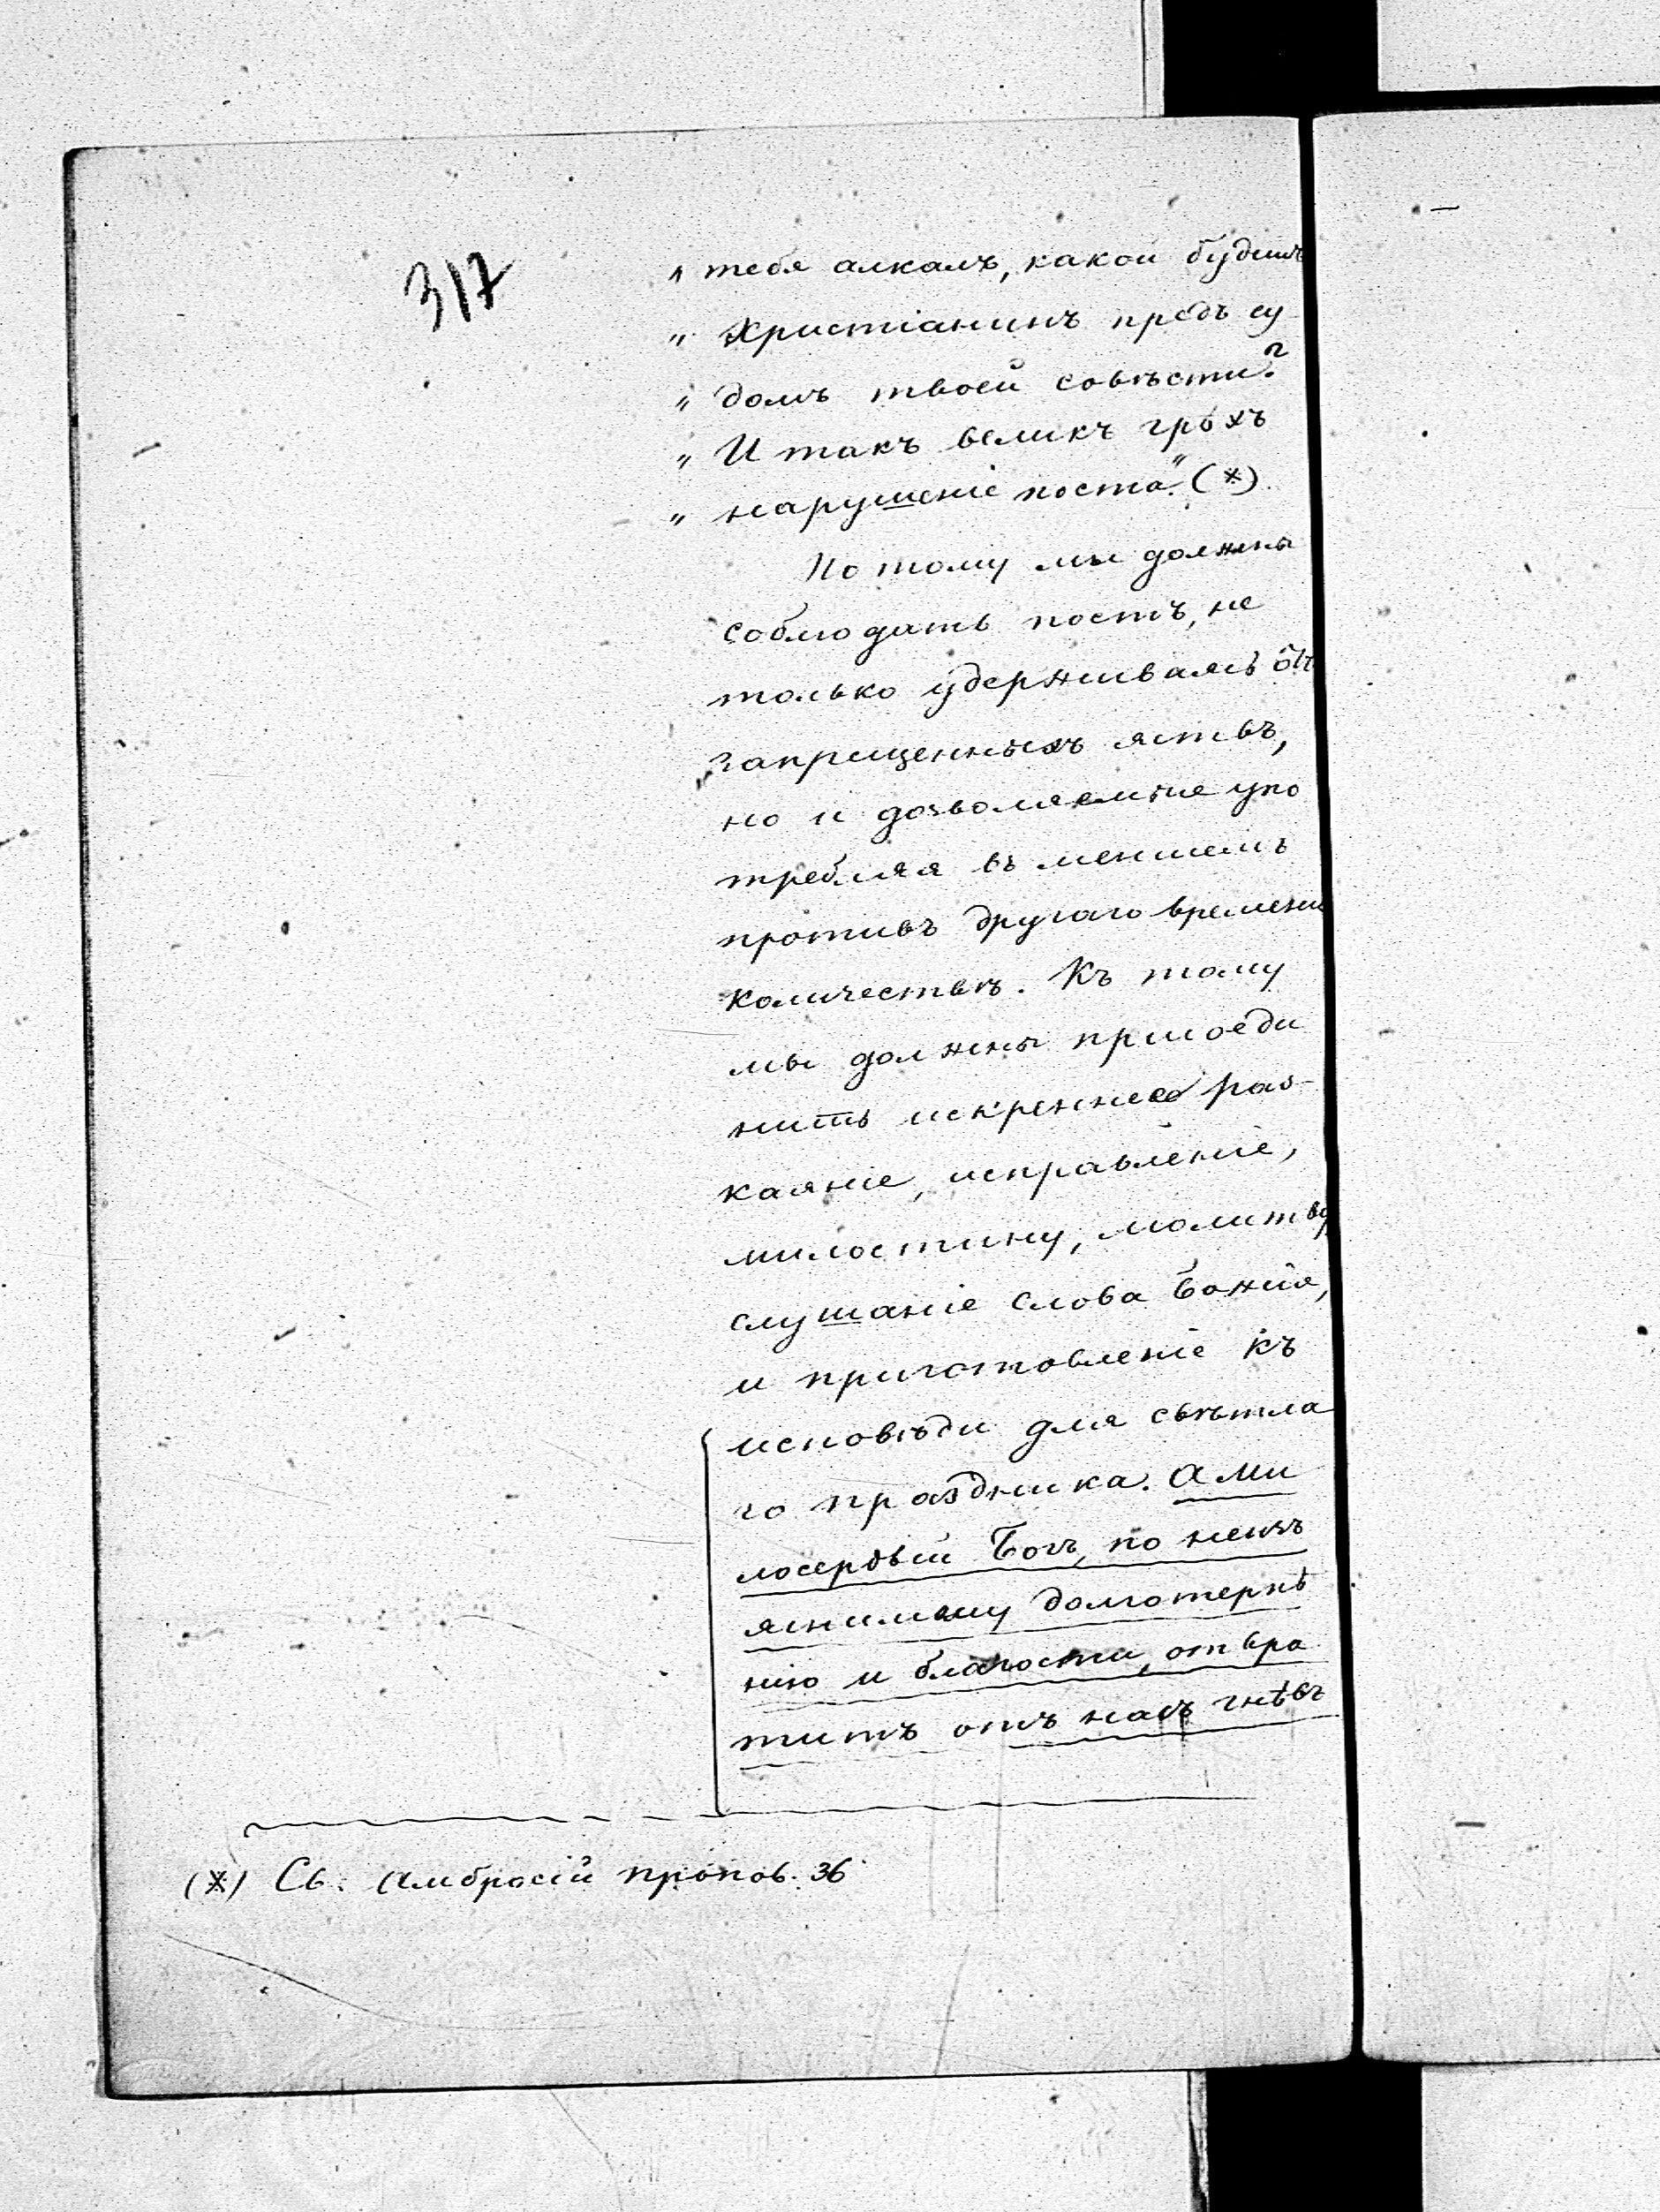 317
„ тебя алкалъ, какой будешь
„ Христіанинъ предъ су
„ домъ твоей совѣсти?
„ И такъ великъ грѣхъ
„ нарушеніе поста." (*)
По тому мы должны
соблюдать постъ, не
только удерживаясь отъ
запрещенныхъ яствъ,
но и дозволяемые упо
требляя въ меншемъ
противъ другаго времени
количествѣ. Къ тому
мы должны присоеди
нить искреннее рас-
каяніе, исправленіе,
милостину, молитву
слушаніе слова Божія,
и приготовленіе къ
исповѣди для свѣтла
го праздника. А ми
лосердый Богъ, по неизъ
яснимому долготерпѣ
нію и благости, отвра
титъ отъ насъ гнѣвъ
(*) Св. Амбросій пропов. 36